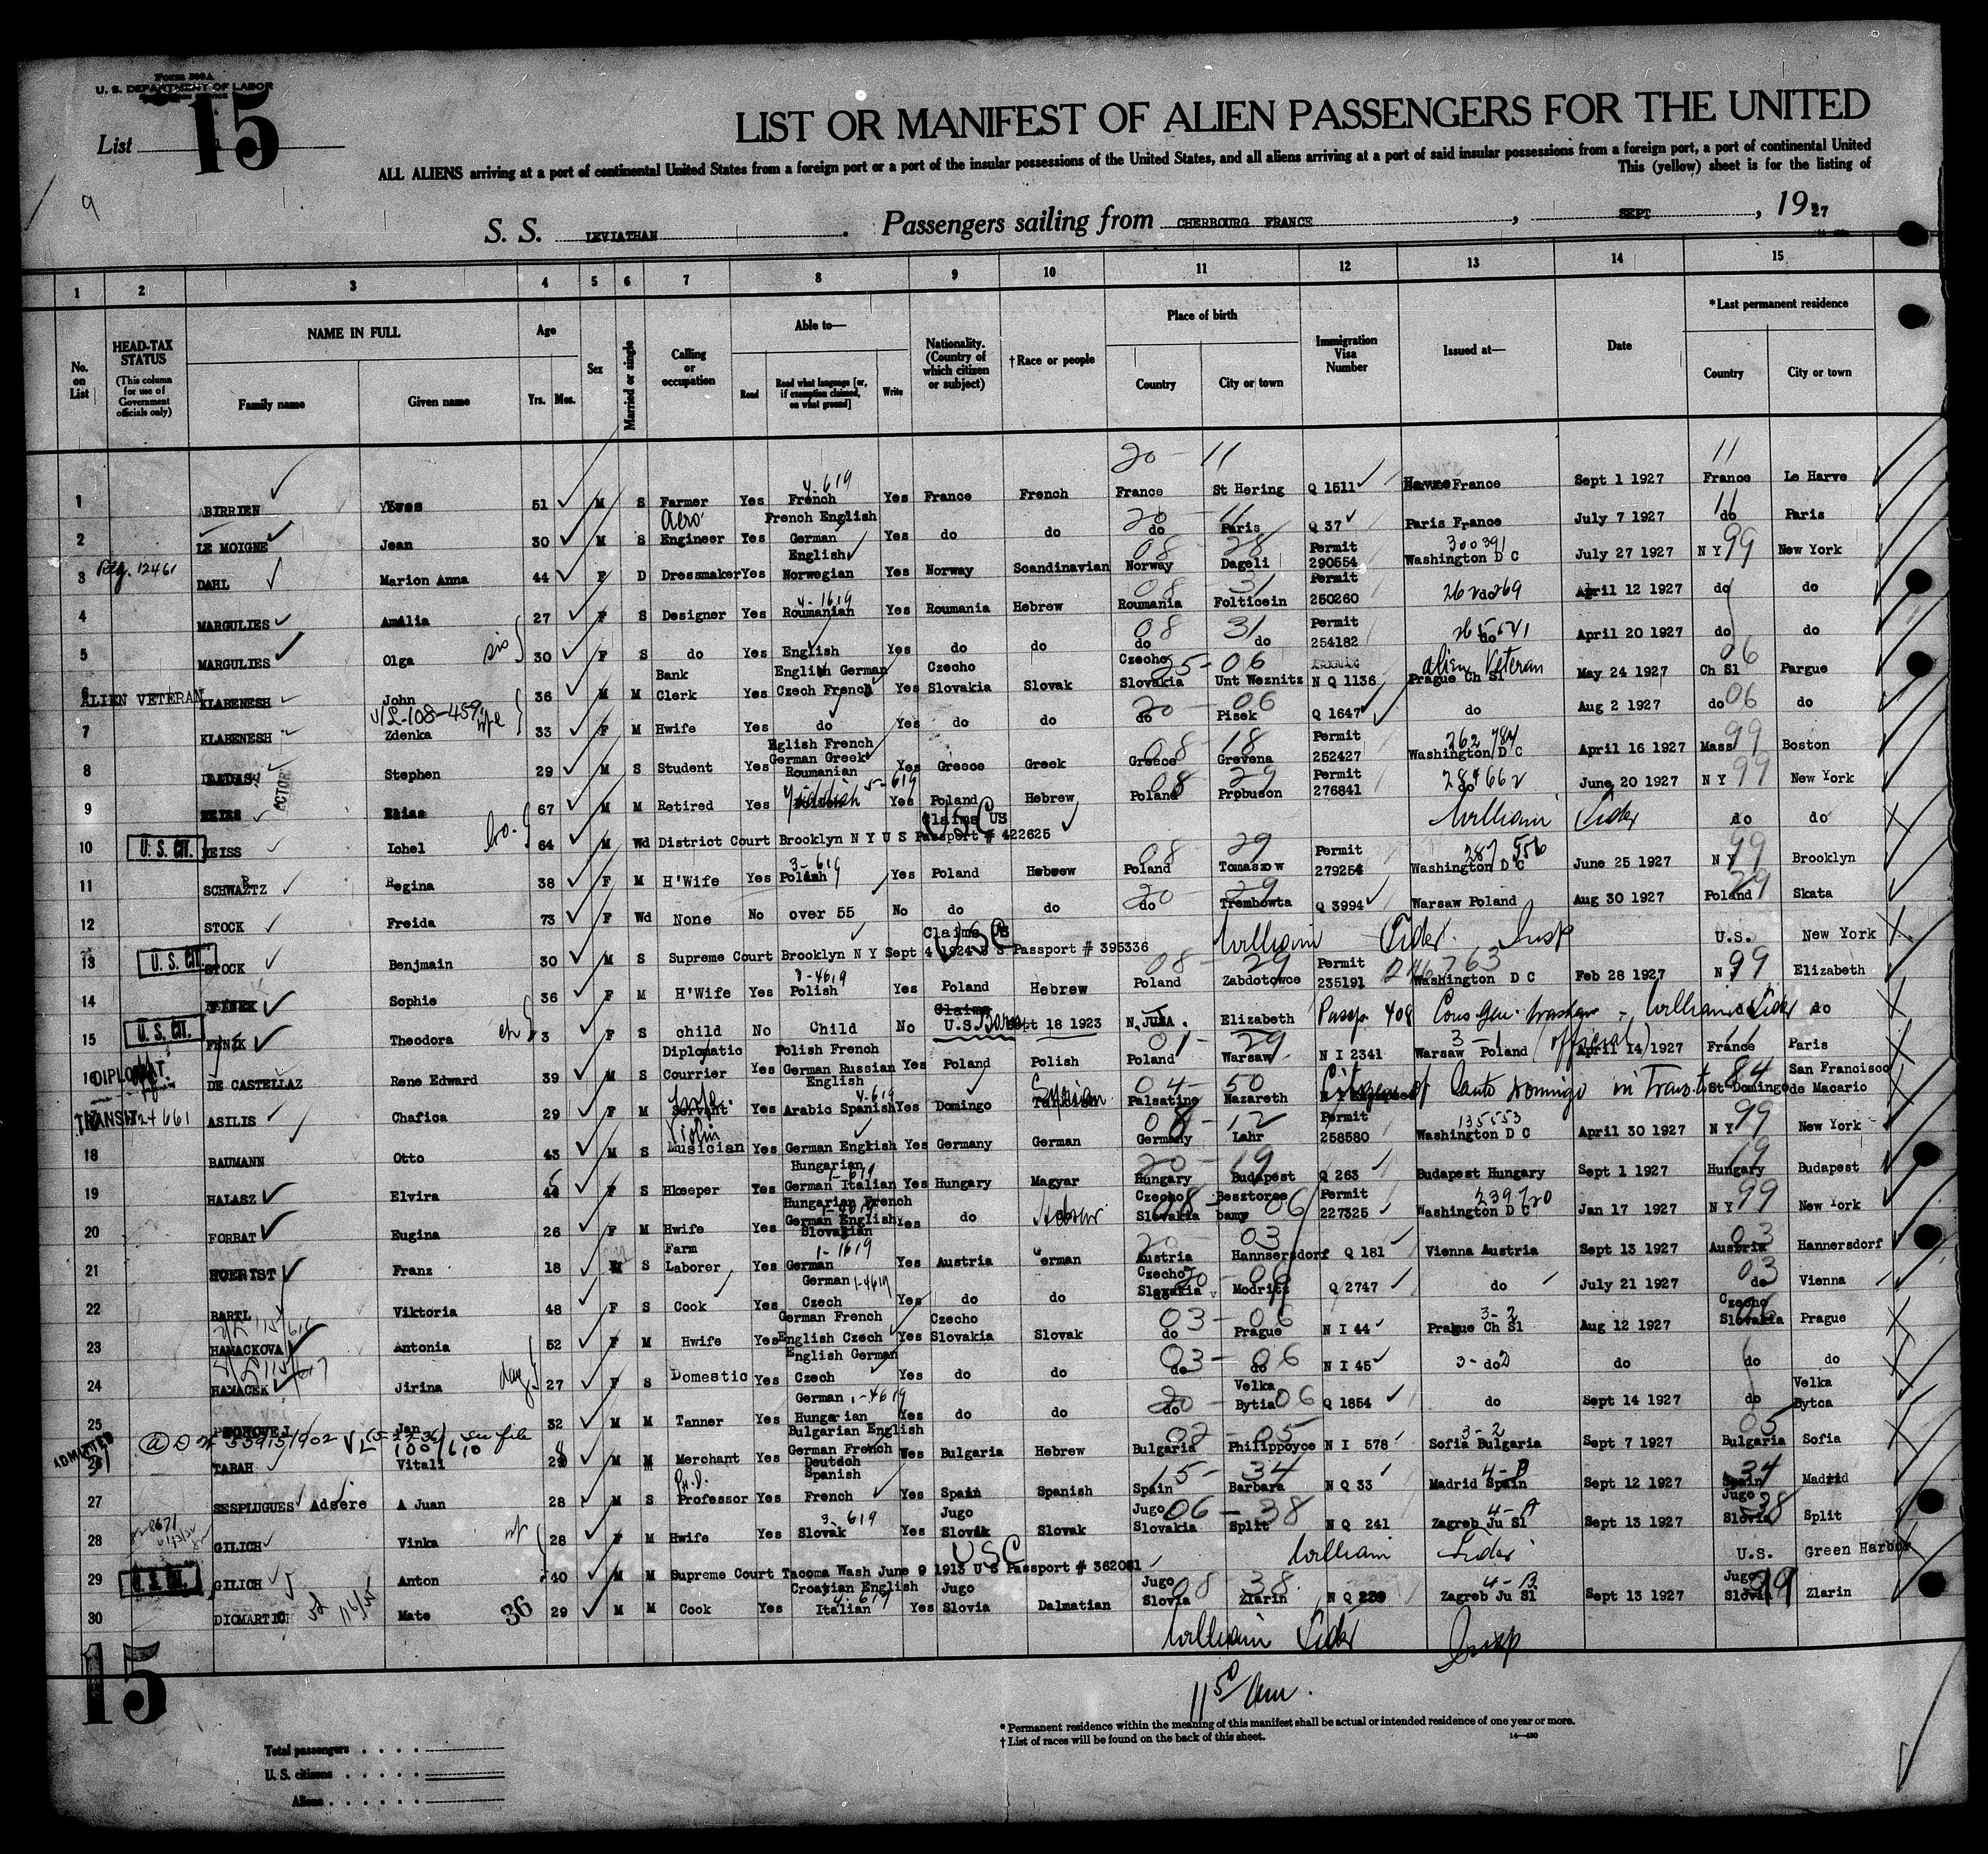 Form 500A
U. S. DEPARTMENT OF LABOR
List 15
LIST OR MANIFEST OF ALIEN PASSENGERS FOR THE UNITED
ALL ALIENS arriving at a port of continental United States from a foreign port or a port of the insular possessions of the United States, and all aliens arriving at a port of said insular possessions from a foreign port, a port of continental United
This (yellow) sheet is for the listing of
9
S. S. LEVIATHAN Passengers sailing from CHERBOURG FRANCE, SEPT, 1927
1 2 3 4 5 6 7 8 9 10 11 12 13 14 15
No. on List
HEAD-TAX STATUS (This column for use of Government officials only)
NAME IN FULL Family name Given name
Age Yrs. Mos.
Sex
Married or single
Calling or occupation
Able to— Read Read what language [or, if exemption claimed, on what ground] Write
Nationality. (Country of which citizen or subject)
†Race or people
Place of birth Country City or town
Immigration Visa Number
Issued at—
Date
*Last permanent residence Country City or town
20 - 11 11
1 BIRRIEN Yves 51 M S Farmer Yes French Yes France French France St Hering Q 1511 Havre France Sept 1 1927 France Le Harve
2 LE MOIGNE Jean 30 M S Aero Engineer Yes French English German Yes do do do Paris Q 37 Paris France July 7 1927 do Paris
3 DAHL Marion Anna 44 F D Dressmaker Yes English Norwegian Yes Norway Scandinavian Norway Dageli Permit 290554 300391 Washington D C July 27 1927 N Y 99 New York
4 MARGULIES Amalia 27 F S Designer Yes Roumanian Yes Roumania Hebrew Roumania Folticein Permit 250260 April 12 1927 do do
5 MARGULIES Olga sis 30 F S do Yes English Yes do do do do Permit 254182 do April 20 1927 do do
6 ALIEN VETERAN KLABENESH John 36 M M Bank Clerk Yes English German Czech French Yes Czecho Slovakia Slovak Czecho Slovakia Unt Weznitz N Q 1136 Alien Veteran Prague Ch Sl May 24 1927 Ch Sl Pargue
7 KLABENESH Zdenka wife 33 F M Hwife Yes do Yes do do do Pisek Q 1647 do Aug 2 1927 do do
8 Stephen 29 M S Student Yes Eglish French German Greek Roumanian Yes Greece Greek Greece Grevena Permit 252427 262784 Washington D C April 16 1927 Mass 99 Boston
9 Elias 67 M M Retired Yes Yiddish Yes Poland Hebrew Poland Prpbuson Permit 276841 284662 do June 20 1927 N Y 99 New York
10 U. S. CIT. WEISS Ichel bro. 64 M Wd District Court Brooklyn N Y U S Passport # 422625 Claims US William Sider do do
11 SCHWARTZ Regina 38 F M H'Wife Yes Polish Yes Poland Hebrew Poland Tomaszow Permit 279254 287556 Washington D C June 25 1927 N Y 99 Brooklyn
12 STOCK Freida 73 F Wd None No over 55 No do do do Trembowta Q 3994 Warsaw Poland Aug 30 1927 Poland Skata
13 U. S. CIT. STOCK Benjmain 30 M S Supreme Court Brooklyn N Y Sept 4 1924 U S Passport # 395336 Claims US William Sider Insp U.S. New York
14 Sophie 36 F M H'Wife Yes Polish Yes Poland Hebrew Poland Zabdotowce Permit 235191 246763 Washington D C Feb 28 1927 N J 99 Elizabeth
15 U. S. CIT. Theodora ch 3 F S child No Child No Claims U.S. Born Sept 18 1923 Elizabeth Passp. 408 Cons Gen. Warsaw - William Sider do
16 DIPLOMAT. DE CASTELLAZ Rene Edward 39 M S Diplomatic Courrier Yes Polish French German Russian English Yes Poland Polish Poland Warsaw N I 2341 Warsaw Poland (official) April 14 1927 France Paris
TRANSIT ASILIS Chafica 29 F M Servant Yes Arabic Spanish Yes Domingo Syrian Palsatine Nazareth Citizen of Santo Domingo in Transit St Domingo San Francisco de Macario
18 BAUMANN Otto 43 M S Violin Musician Yes German English Yes Germany German Germany Lahr Permit 258580 135553 Washington D C April 30 1927 N Y 99 New York
19 HALASZ Elvira F S Hkeeper Yes Hungarian German Italian Yes Hungary Magyar Hungary Budapest Q 263 Budapest Hungary Sept 1 1927 Hungary Budapest
20 FORBAT Eugina 26 F M Hwife Yes Hungarian French German English Slovakian Yes do Hebrew Czecho Slovakia Besztorce bamy Permit 227325 239720 Washington D C Jan 17 1927 N Y 99 New York
21 Franz 18 M S Farm Laborer Yes German Yes Austria German Austria Hannsersdorf Q 181 Vienna Austria Sept 13 1927 Austria Hannersdorf
22 BARTL Viktoria 48 F S Cook Yes German Czech Yes do do Czecho Slovakia Modritz Q 2747 do July 21 1927 do Vienna
23 HAMACKOVA Antonia 52 F M Hwife Yes German French English Czech Yes Czecho Slovakia Slovak do Prague N I 44 Prague Ch Sl Aug 12 1927 Czecho Slovakia Prague
24 HAMACEK Jirina dau 27 F S Domestic Yes English German Czech Yes do do do do N I 45 do do do do
25 Jan 32 M M Tanner Yes German Hungarian Yes do do do Velka Bytia Q 1854 do Sept 14 1927 do Velka Bytca
ADMITTED 26 TABAH Vitali M M Merchant Yes Bulgarian English German French Deutdch Spanish Yes Bulgaria Hebrew Bulgaria Philippoyce N I 578 Sofia Bulgaria Sept 7 1927 Bulgaria Sofia
27 SESPLUGUES Adsere A Juan 28 M S Ph.D. Professor Yes French Yes Spain Spanish Spain Barbara N Q 33 Madrid Spain Sept 12 1927 Spain Madrid
28 GILICH Vinka wf 28 F M Hwife Yes Slovak Yes Jugo Slovak Slovak Jugo Slovakia Split N Q 241 Zagreb Ju Sl Sept 13 1927 Jugo Slovia Split
29 U. S. CIT. GILICH Anton 40 M M Supreme Court Tacoma Wash June 9 1913 U S Passport # 362081 USC William Sider U.S. Green Harbor
30 DICMARTICH Mate 36 29 M M Cook Yes Croatian English Italian Yes Jugo Slovia Dalmatian Jugo Slovia Zlarin N Q 239 Zagreb Ju Sl Sept 13 1927 Jugo Slovia Zlarin
William Sider Insp
15
* Permanent residence within the meaning of this manifest shall be actual or intended residence of one year or more.
† List of races will be found on the back of this sheet.
Total passengers
U. S. citizens
Aliens